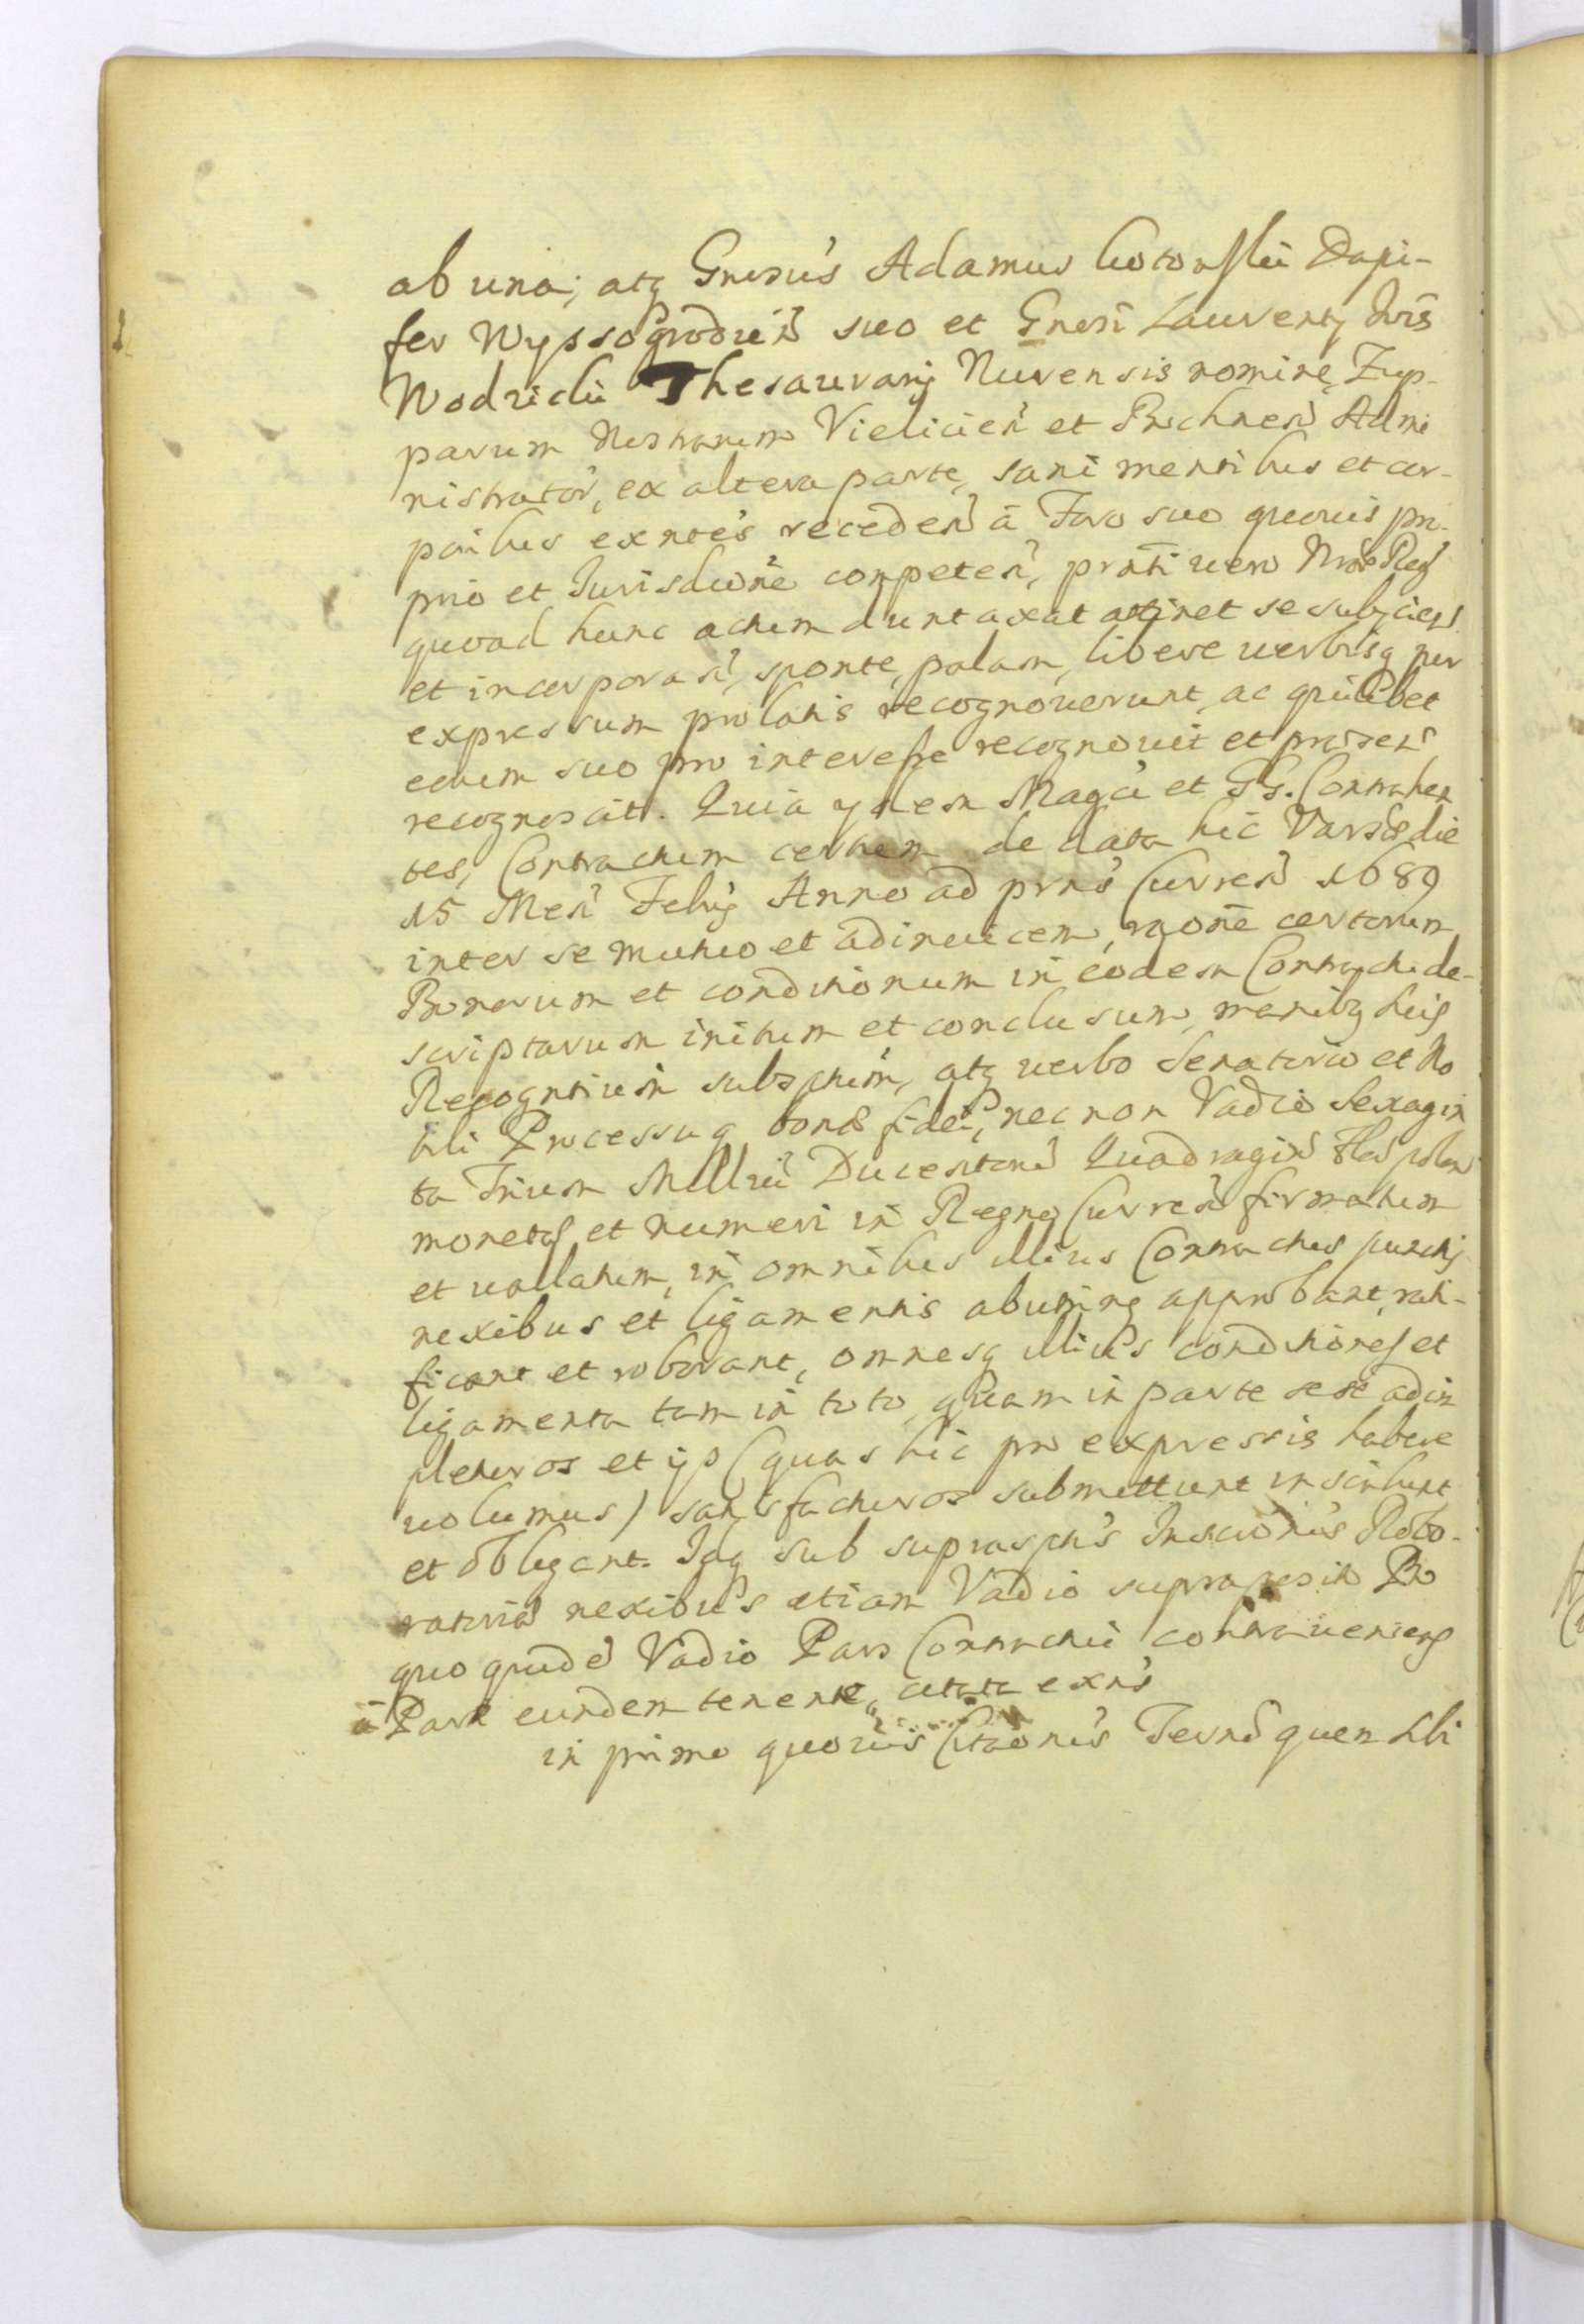 ab una; atq Gnrsus Adamus Kotowski Dapi-
fer Wyssogrodien suo et Gnrsi Laurenty Nris
Wodzicki Thesaurarij Nurensis nomine, Zup-
parum Nostrarum Vielicien et Bochnen Admi
nistrator, ex altera parte, sani mentibus et cor-
poribus exntes receden a Foro suo quouis pro-
prio et Jurisdcione competen, prnti uero Nro Reg
quoad hunc actum duntaxat attinet se subjcien
et incorporan, sponte, palam, libere uerbisq per
expressum prolatis recognouerunt, ac quilibet
eorum suo pro interesse recognouit et prasen
recognoscit. Quia ydem Magci et GG. Contrahen
tes, Contractum certum de data hic Varsae die
15 Men Febrij Anno ad prns Curren 1689
inter se mutuo et adinuicem, raone certorum
Bonorum et conditionum in eodem Contractu de-
scriptarum initum et conclusum, manibq huis
Recogntium subsptum, atq uerbo Senatorio et No
bili Processuq bona fidei, nec non Vadio Sexagin
ta Trium Millia Ducentorum Quadragin Flor polon
moneta et numeri in Regno Curren firmatum
et uallatum, in omnibus illius Contractus punctis
nexibus et ligamentis abuning approbant, rati-
ficant et roborant, omnesq illius conditiones et
ligamenta tam in toto, quam in parte sese adim
pleturos et ijs (quas hic pro expressis habere
uolumus) satisfacturos submittunt inscribunt
et obligant. Idq sub suprasptis Inscionis Robo-
ratoria nexibus etiam Vadio supraposito Pro
quo quidem Vadio Pars Contractui contraueniens
a Parte eundem tenente, citata exns
in primo quouis Citaonis Termo quem sibi